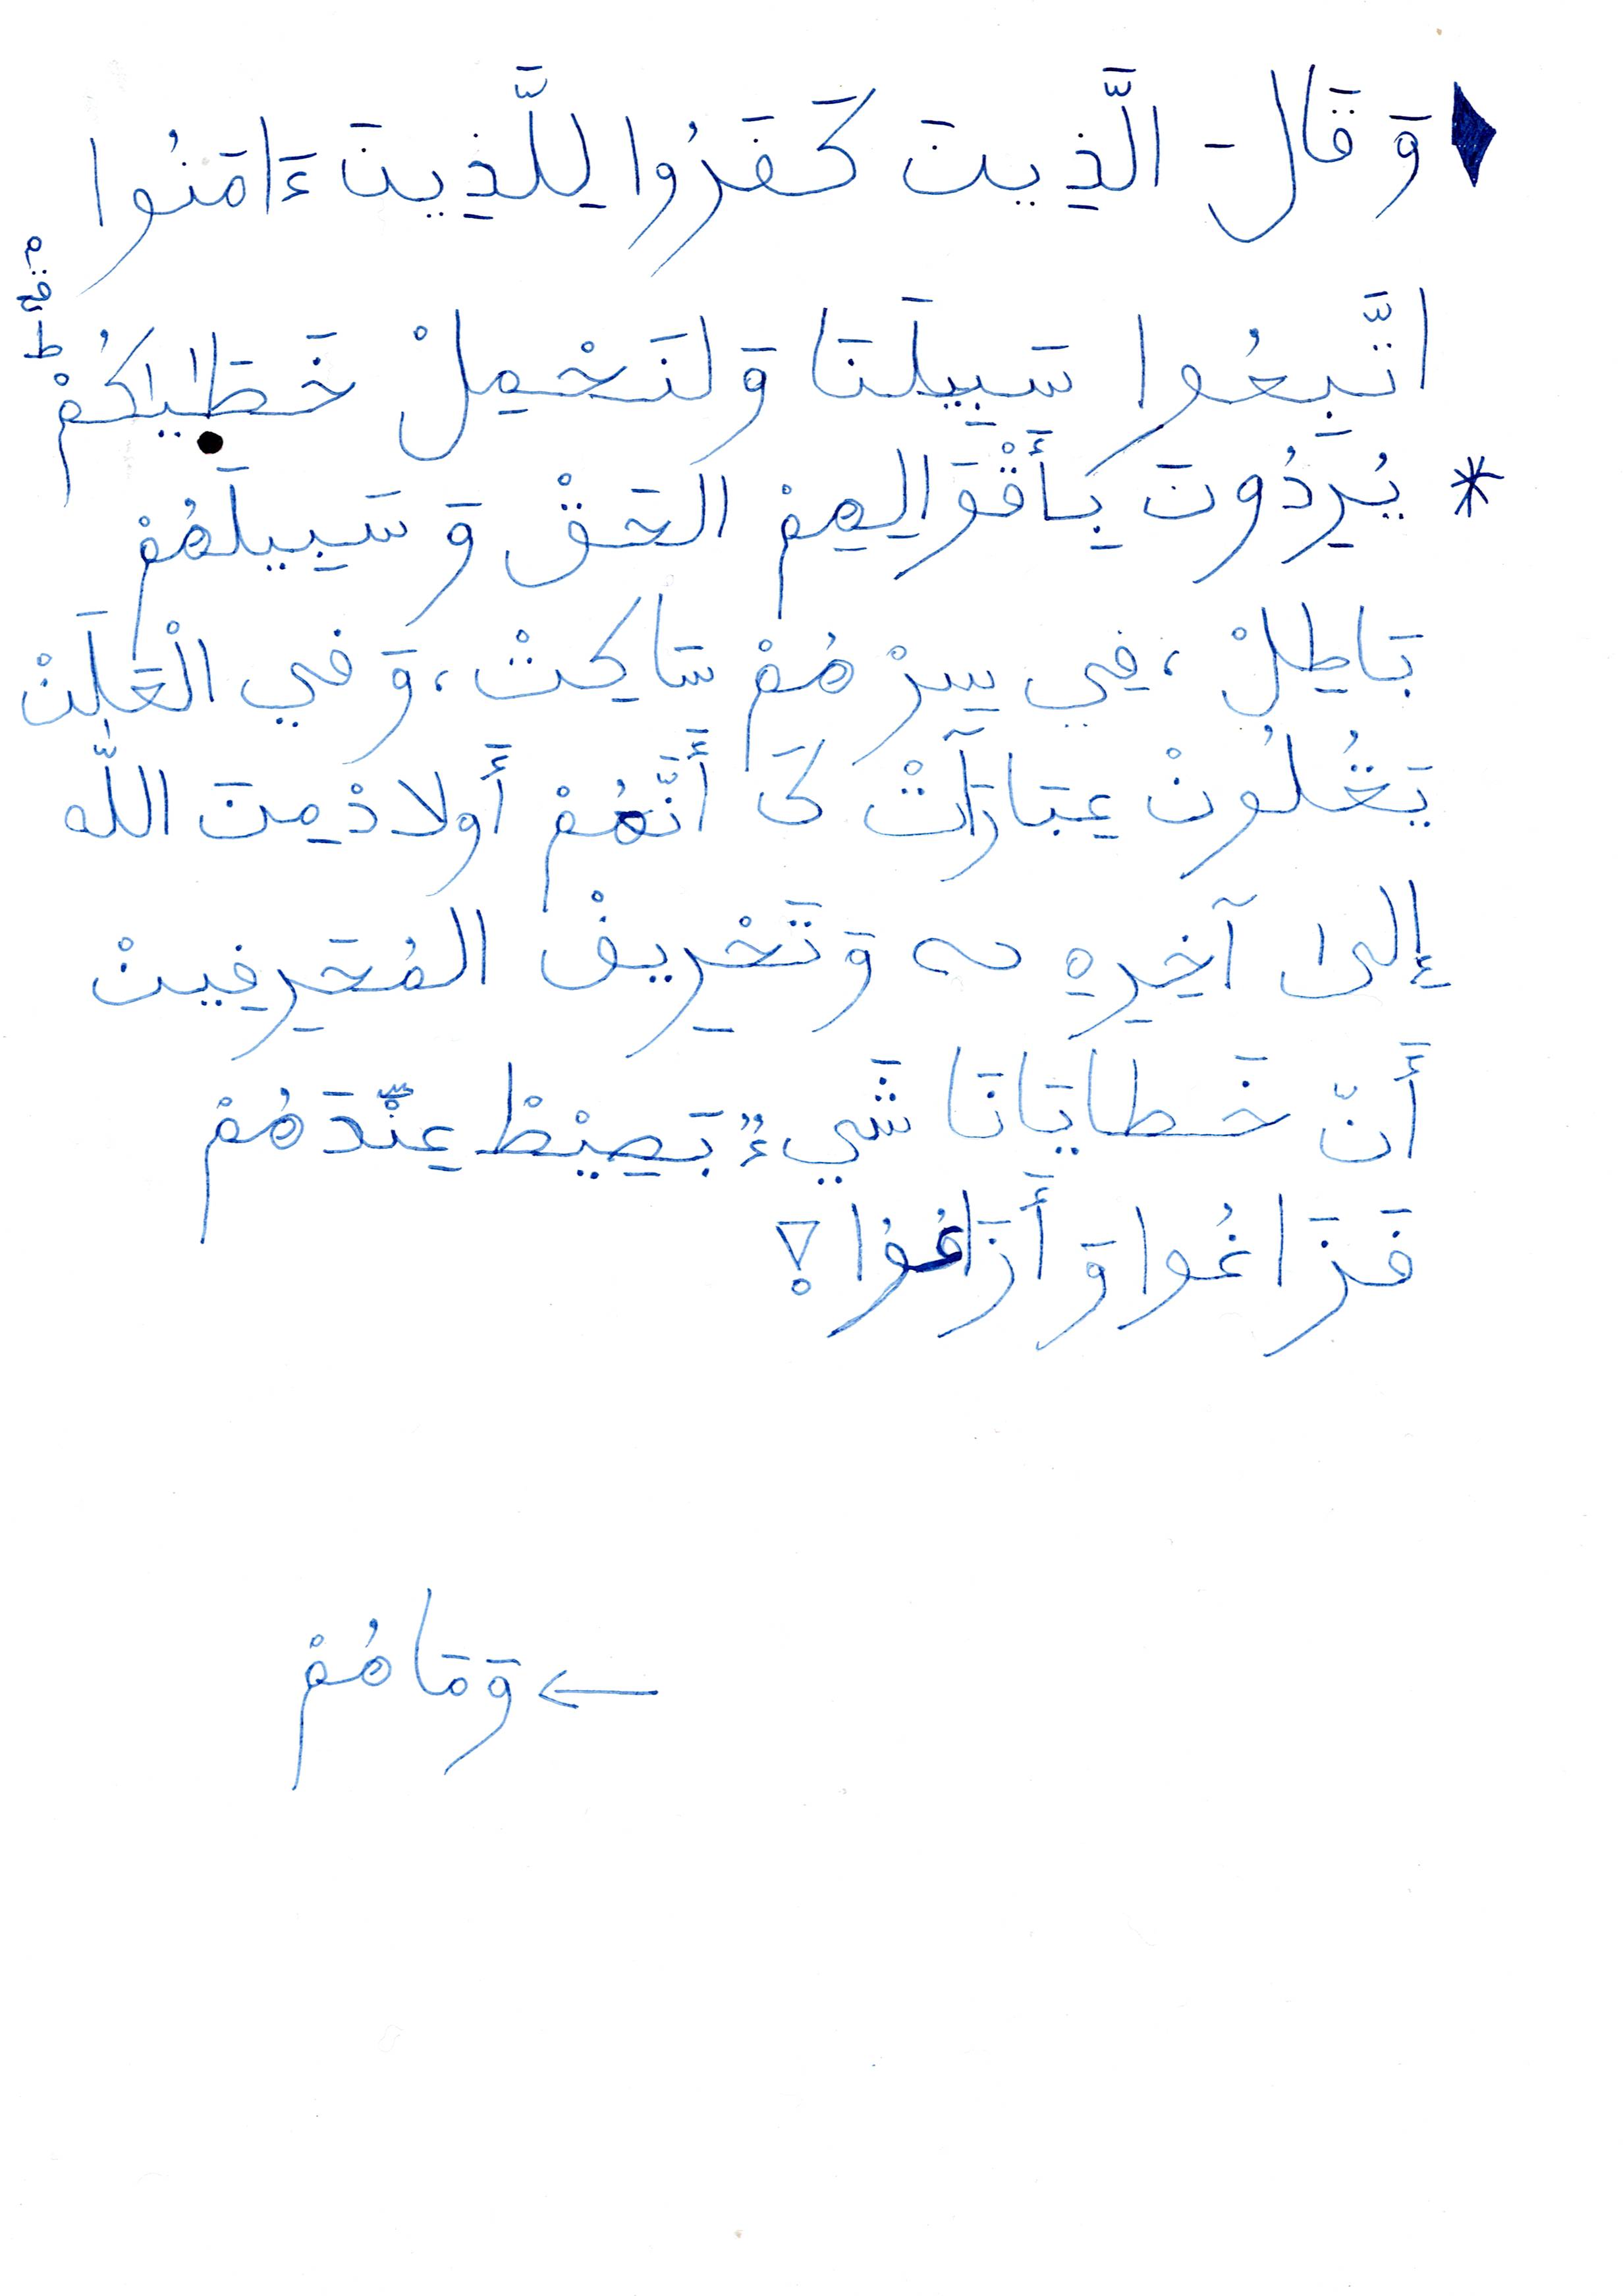 ♦ وَ قَالَ الَّذِينَ كَفَرُوا لِلَّذِينَ ءَامَنُوا
اتَّبِعُوا سَبِيلَنَا وَلْنَحْمِلْ خَطَٰيَٰكُمْ ط
* يُرِدُونَ بِأَقْوَالِهِمْ الحَقْ وَ سَبِيلَهُمْ
بَاطِلْ، فِي سِرْهُمْ سَاكِتْ، وَ في الْعَلَنْ
يَغْلُونْ عِبَارَآتْ كَ أَنَّهُمْ أَولادْ مِنَ اللّه
إِلىٰ آخِرِهِ وَ تَحْرِيفْ المُحَرِفِينْ
أَنّ خَطايَانَا شَيءٌ بَصِيْطْ عِنْدَهُمْ
فَزَاغُوا وَ أَزَاغُوا؟
← وَ مَا هُمْ